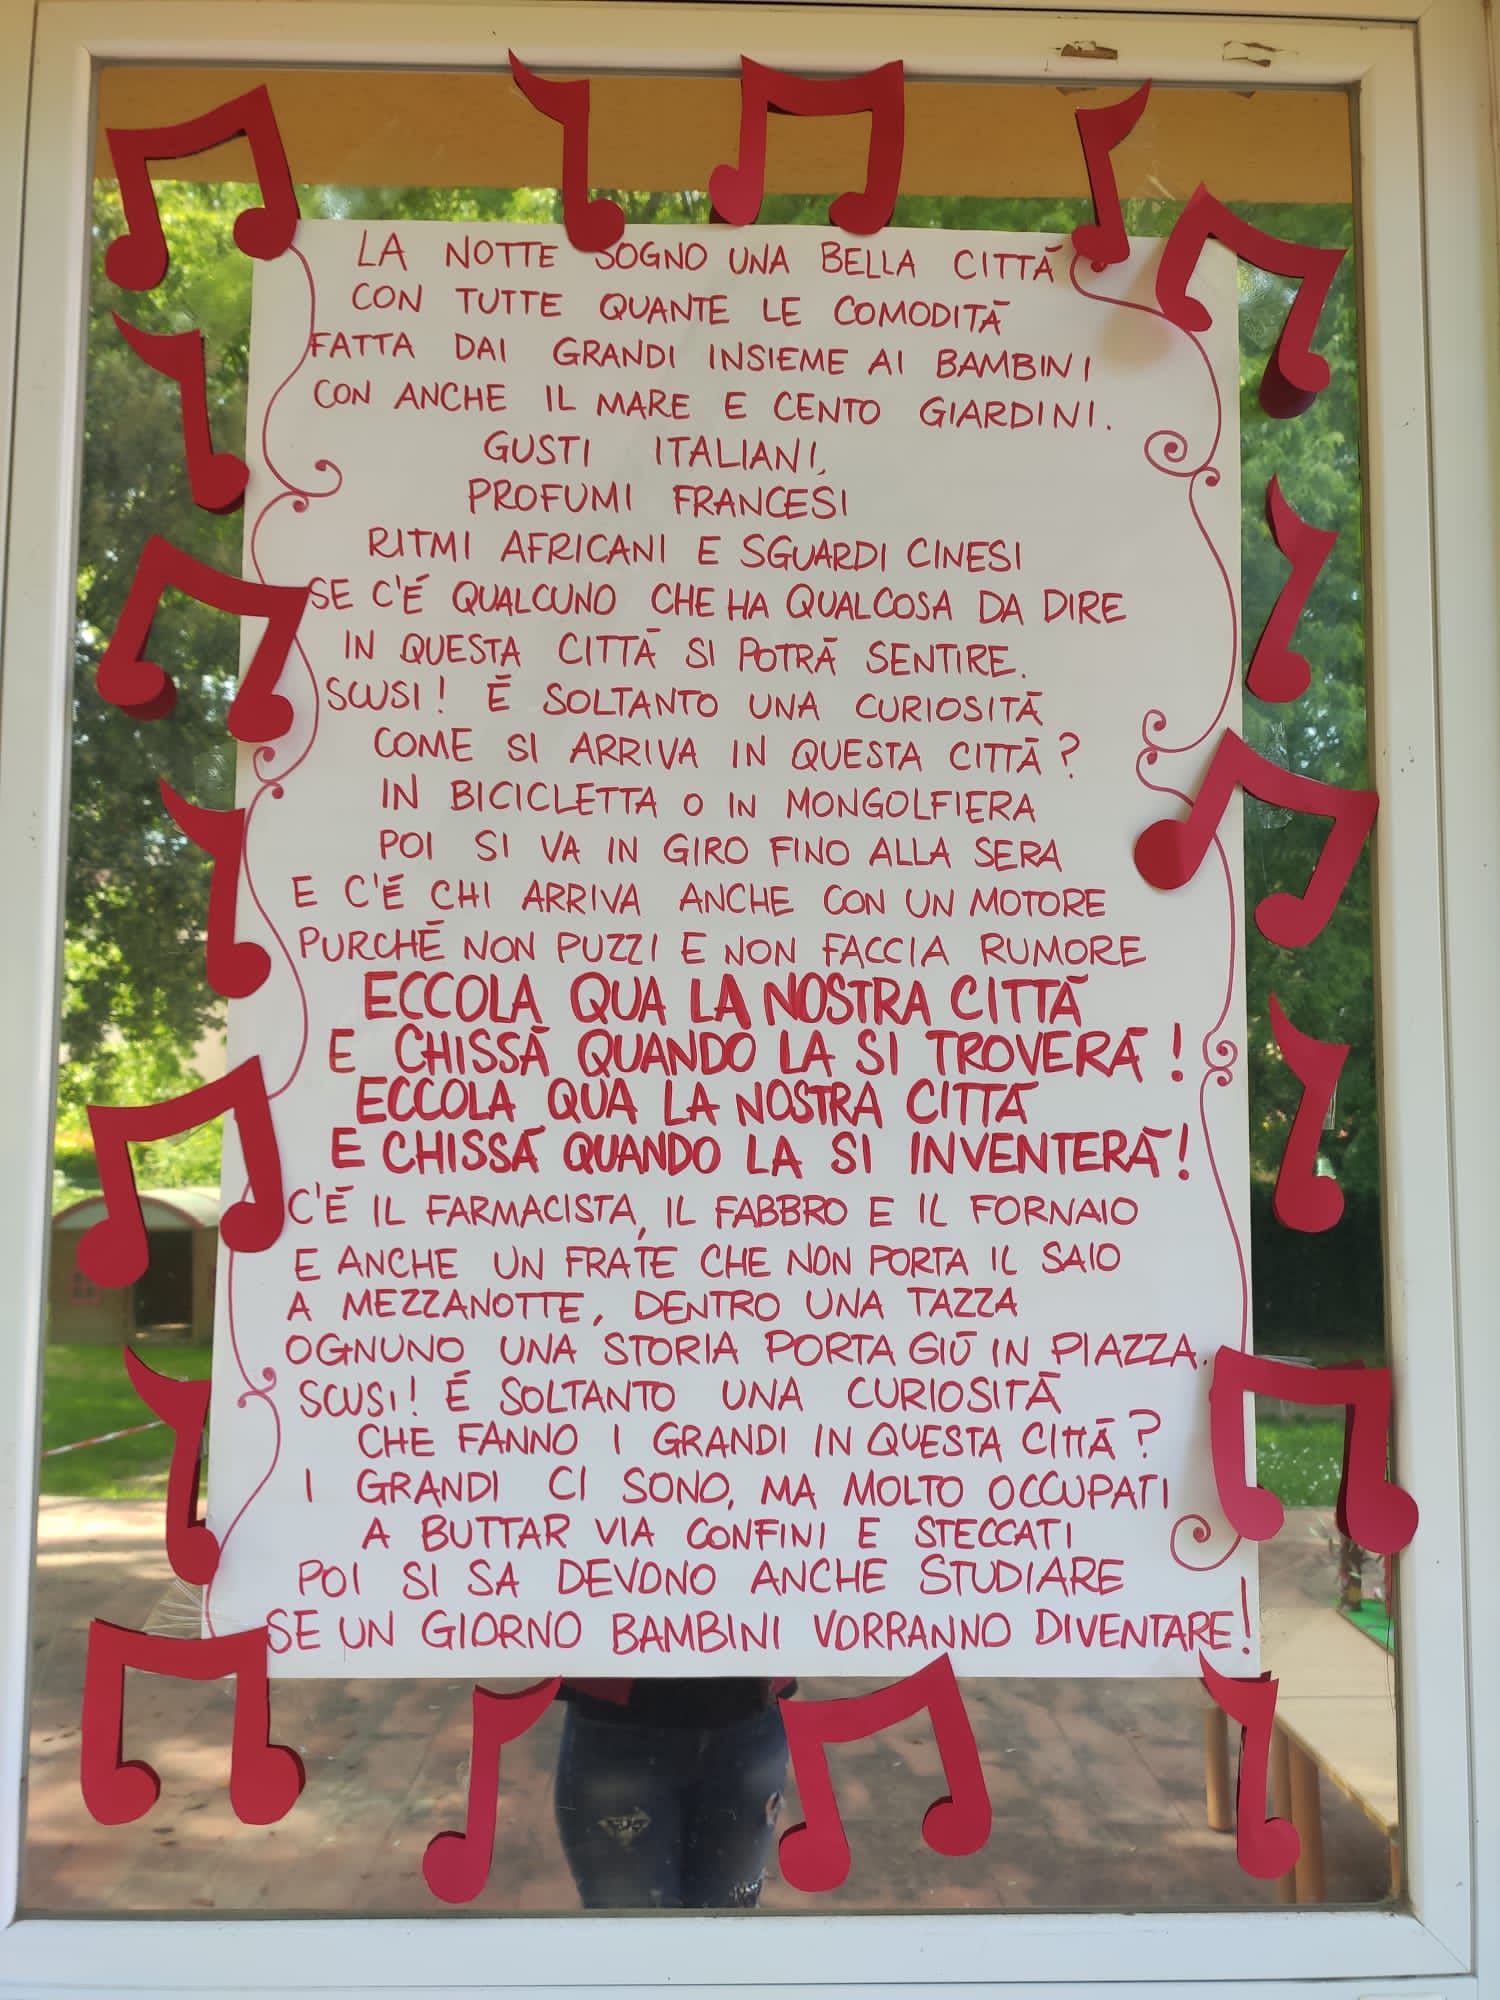 LA NOTTE SOGNO UNA BELLA CITTÀ
CON TUTTE QUANTE LE COMODITÀ
FATTA DAI GRANDI INSIEME AI BAMBINI
CON ANCHE IL MARE E CENTO GIARDINI.
GUSTI ITALIANI,
PROFUMI FRANCESI
RITMI AFRICANI E SGUARDI CINESI
SE C'È QUALCUNO CHE HA QUALCOSA DA DIRE
IN QUESTA CITTÀ SI POTRÀ SENTIRE.
SCUSI! È SOLTANTO UNA CURIOSITÀ
COME SI ARRIVA IN QUESTA CITTÀ?
IN BICICLETTA O IN MONGOLFIERA
POI SI VA IN GIRO FINO ALLA SERA
E C'È CHI ARRIVA ANCHE CON UN MOTORE
PURCHÉ NON PUZZI E NON FACCIA RUMORE
ECCOLA QUA LA NOSTRA CITTÀ
E CHISSÀ QUANDO LA SI TROVERÀ!
ECCOLA QUA LA NOSTRA CITTÀ
E CHISSÀ QUANDO LA SI INVENTERÀ!
C'È IL FARMACISTA, IL FABBRO E IL FORNAIO
E ANCHE UN FRATE CHE NON PORTA IL SAIO
A MEZZANOTTE, DENTRO UNA TAZZA
OGNUNO UNA STORIA PORTA GIÙ IN PIAZZA.
SCUSI! È SOLTANTO UNA CURIOSITÀ
CHE FANNO I GRANDI IN QUESTA CITTÀ?
I GRANDI CI SONO, MA MOLTO OCCUPATI
A BUTTAR VIA CONFINI E STECCATI
POI SI SA DEVONO ANCHE STUDIARE
SE UN GIORNO BAMBINI VORRANNO DIVENTARE!